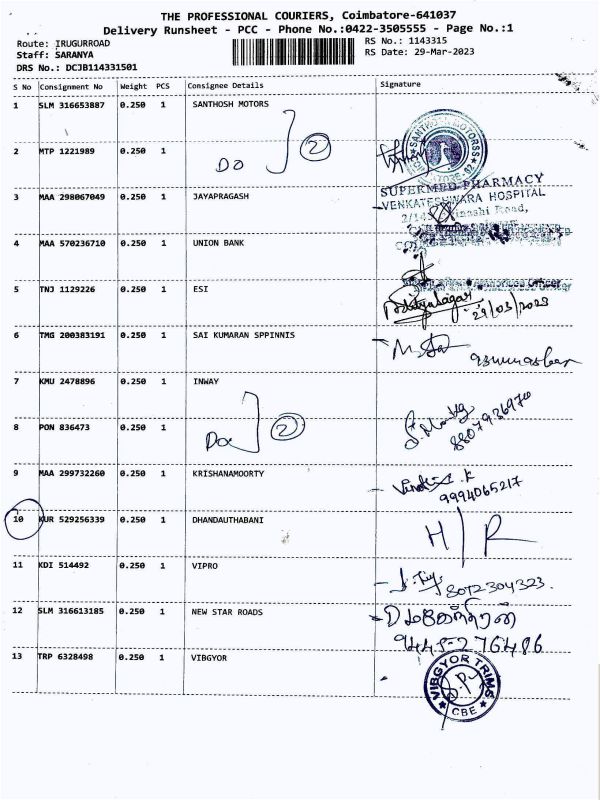 THE PROFESSIONAL COURIERS, Coimbatore-641037
Delivery Runsheet - PCC - Phone No.:0422-3505555 - Page No.:1
Route: IRUGURROAD
Staff: SARANYA
DRS No.: DCJB114331501
RS No.: 1143315
RS Date: 29-Mar-2023
S No Consignment No Weight PCS Consignee Details Signature
1 SLM 316653887 0.250 1 SANTHOSH MOTORS
2 MTP 1221989 0.250 1 Do 2
SANTHOSH MOTORSS
3 MAA 298067049 0.250 1 JAYAPRAGASH
SUPERMED PHARMACY
VENKATESHWARA HOSPITAL
4 MAA 570236710 0.250 1 UNION BANK
5 TNJ 1129226 0.250 1 ESI
29/03/2023
6 TMG 200383191 0.250 1 SAI KUMARAN SPPINNIS
7 KMU 2478896 0.250 1 INWAY
8 PON 836473 0.250 1 Do 2
8807936970
9 MAA 299732260 0.250 1 KRISHANAMOORTY
9994065217
10 KUR 529256339 0.250 1 DHANDAUTHABANI H/R
11 KDI 514492 0.250 1 VIPRO
8072304323.
12 SLM 316613185 0.250 1 NEW STAR ROADS
13 TRP 6328498 0.250 1 VIBGYOR
VIBGYOR TRIMS
CBE